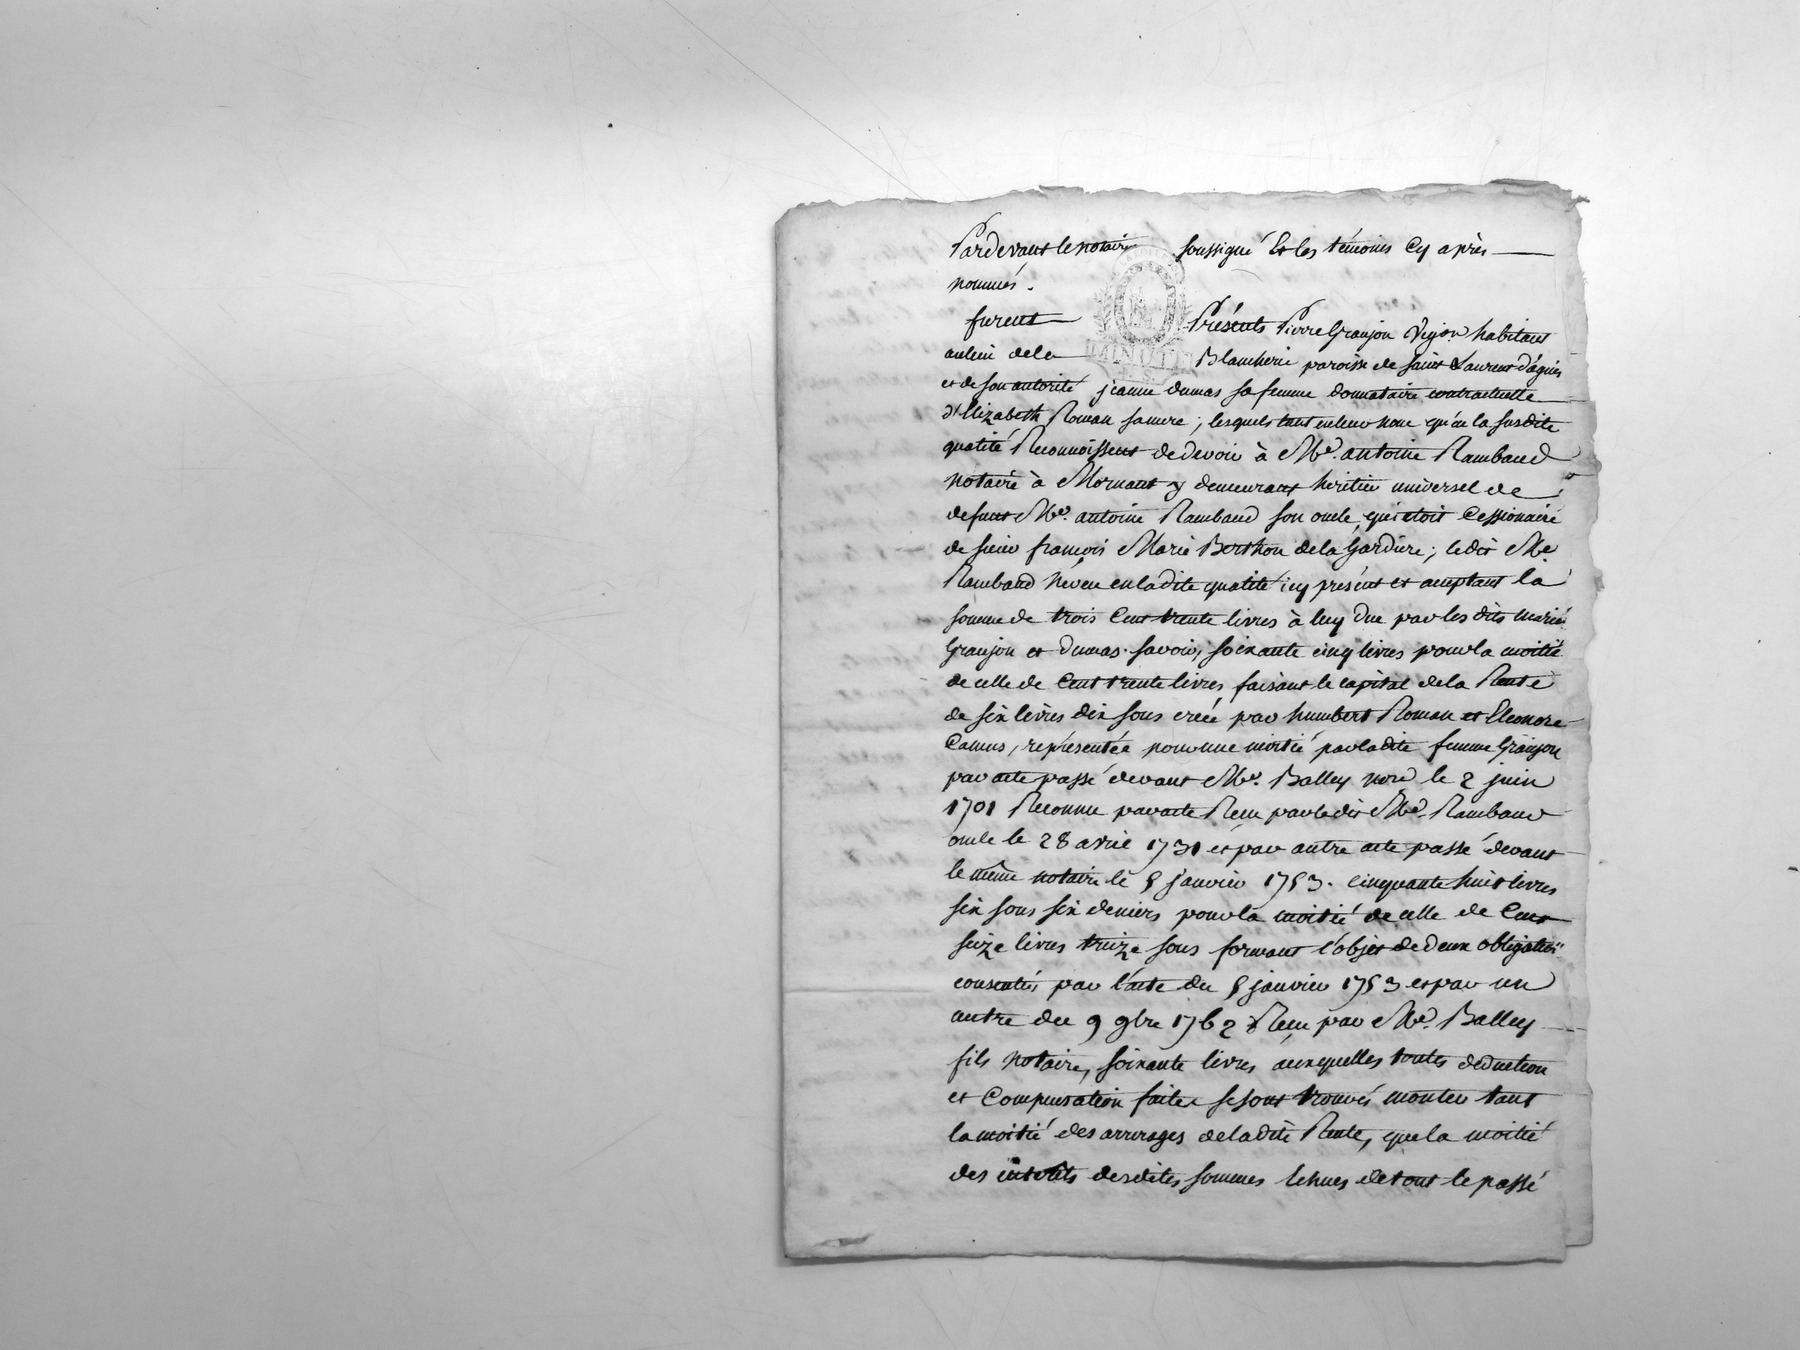 Pardevant le notaire soussigné Et les témoins Cy après
nommés.
furent Présents Pierre Granjon Vigon habitant
au lieu dela Blancherie paroisse de Saint Laurent d'agnis
et de son autorité jeanne dumas sa femme donnataire contractuelle
d'Elizabeth Roman sa mere; lesquels tant en leur nom qu'en la susdite
qualité Reconnoissent de devoir à Me. antoine Rambaud
notaire à Mornant y demeurant heritier universel de
defunt Me. antoine Rambaud son oncle, qui etoit Cessionaire
de sieur françois Marie Berthon dela Gardiere; ledit Me
Rambaud neveu en ladite qualité icy présent et acceptant la
somme de trois Cent trente livres à luy Due par les dits mariés
Granjon et Dumas. savoir, soixante cinq livres pour la moitié
de celle de Cent trente livres, faisant le capital dela Rente
de six livres dix sous créée par humbert Roman et Eleonore
Camus, représentée pour une moitié par ladite femme Granjon
par acte passé devant Me. Balley nore le 2 juin
1701 Reconnu par acte Recu par ledit Me. Rambaud
oncle le 28 avril 1731 et par autre acte passé devant
le même notaire le 5 janvier 1753. cinquante huit livres
six sous six deniers pour la moitié de celle de Cent
seize livres treize sous formant l'objet de deux obligations
consenties par l'acte du 5 janvier 1753 et par un
autre du 9 9bre 1762 Recu par Me. Balley
fils notaire, soixante livres auxquelles toutes deduction
et Compensation faites se sont trouvés monter tant
la moitié des arrerages de ladite Rente, que la moitié
des intérêts desdites sommes Echues de tout le passé